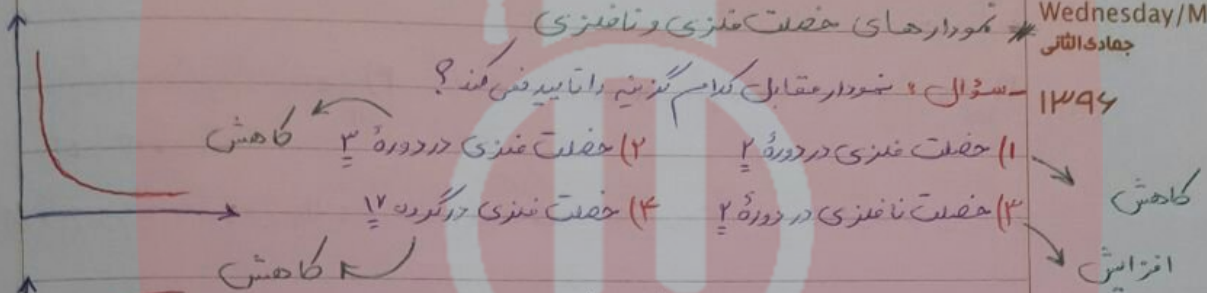 Wednesday/M
جمادی‌الثانی
* نمودارهای خصلت فلزی و نافلزی
۱۳۹۶
- سؤال: نمودار مقابل کدام گزینه را تایید نمی کند؟
۱) خصلت فلزی در دورهٔ ۲ ۲) خصلت فلزی در دورهٔ ۳ کاهش
کاهش
۳) خصلت نافلزی در دورهٔ ۲ ۴) خصلت فلزی در گروه ۱۷
افزایش
کاهش